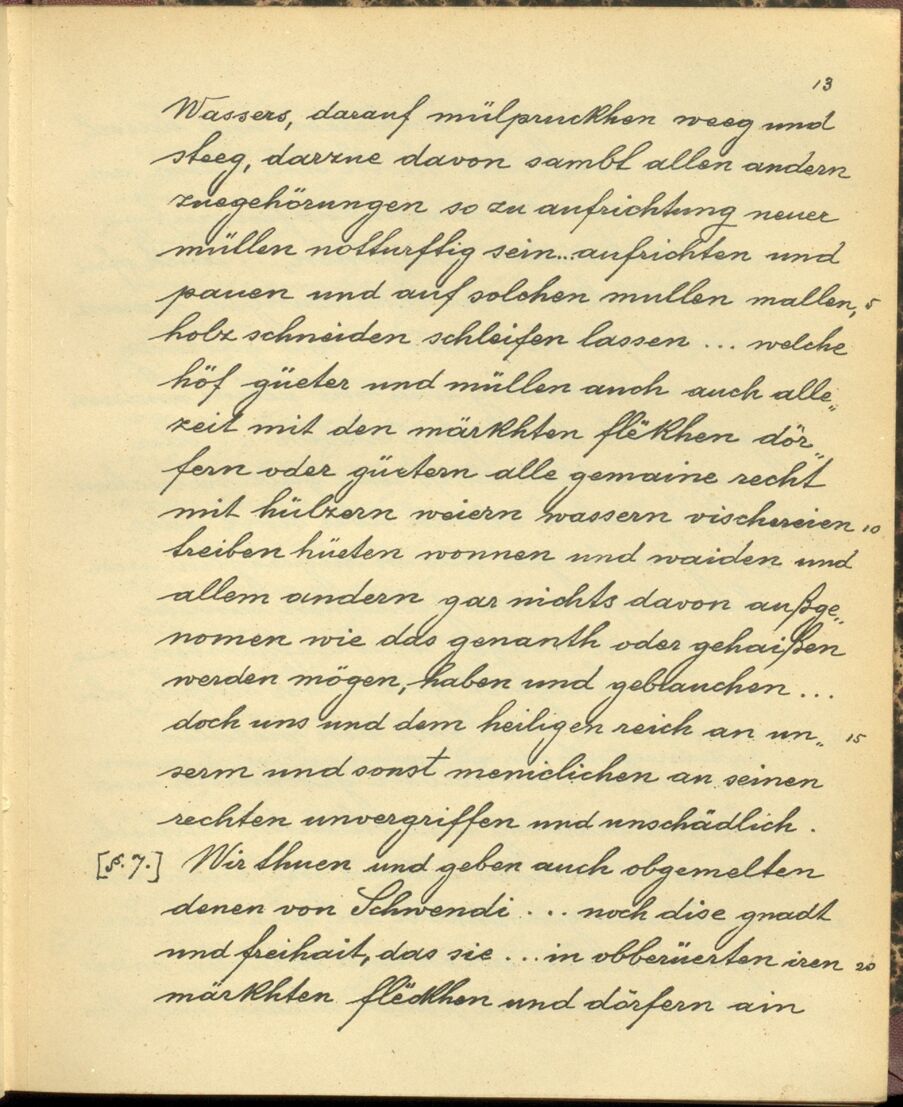 13
Wassers, darauf mülpruckhen weeg und
steeg, darzue davon sambt allen andern
zuegehörungen so zu aufrichtung neuer
müllen notturftig sein... aufrichten und
pauen und auf solchen mullen mallen, 5
holz schneiden schleifen lassen ... welche
höf güeter und müllen auch auch alle„
zeit mit den märkhten flëkhen dör„
fern oder güetern alle gemaine recht
mit hülzern weiern wassern vischereien 10
treiben hüeten wonnen und waiden und
allem andern gar nichts davon außge„
nomen wie das genanth oder gehaißen
werden mögen, haben und gebrauchen ...
doch uns und dem heiligen reich an un„ 15
serm und sonst meniclichen an seinen
rechten unvergriffen und unschädlich.
[§. 7.] Wir thuen und geben auch obgemelten
denen von Schwendi ... noch dise gnadt
und freihait, das sie ... in obberüerten iren 20
märkhten flëckhen und dörfern ain